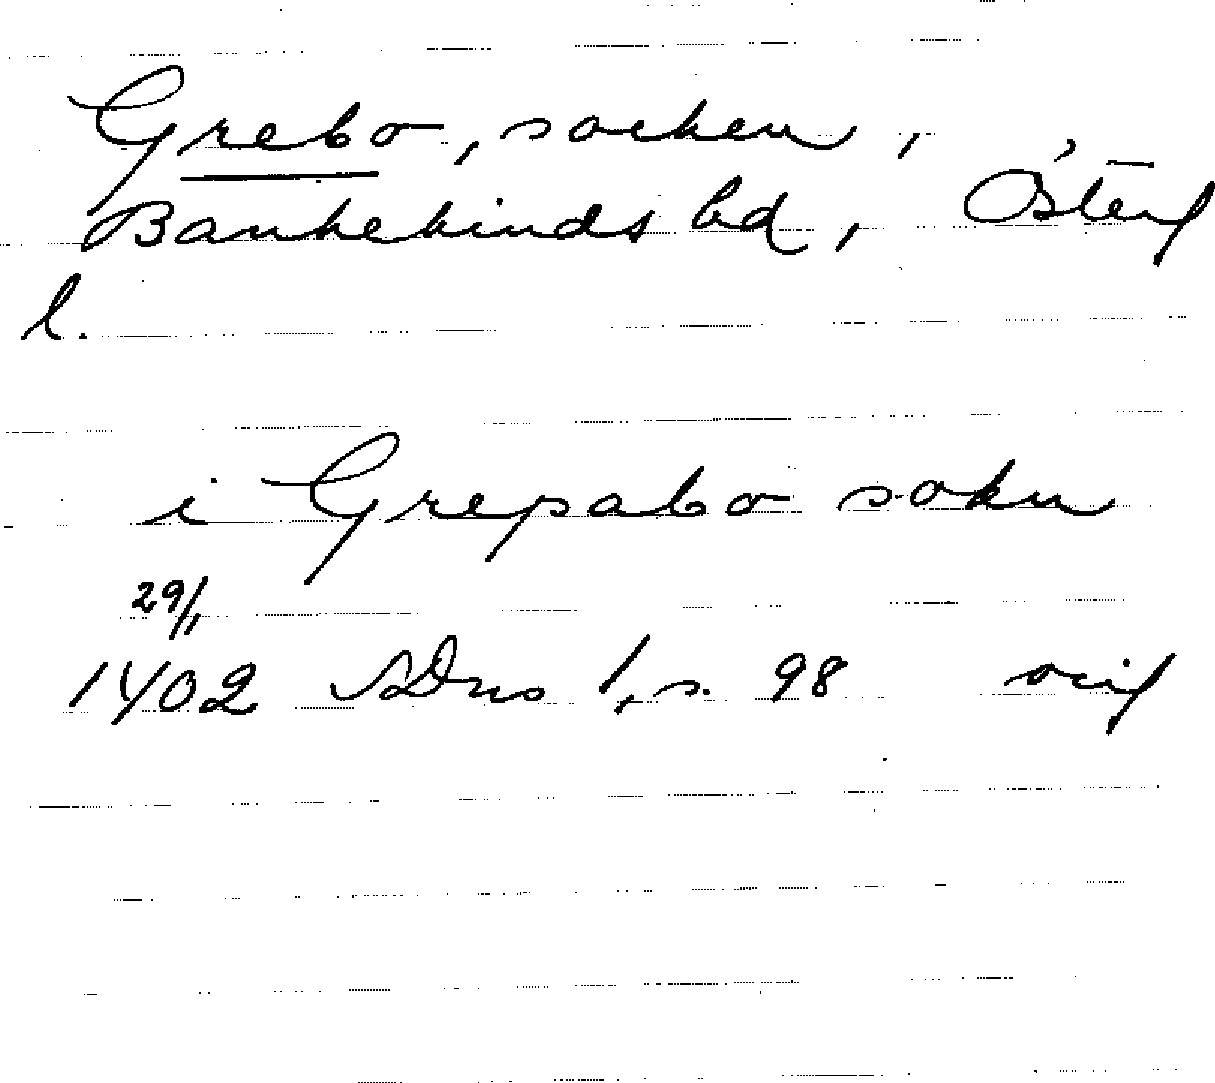 Grebo, socken,
Bankekinds hd, Österg
l.
i Grepabo sokn
29/1
1402 SDns 1, s. 98 orig